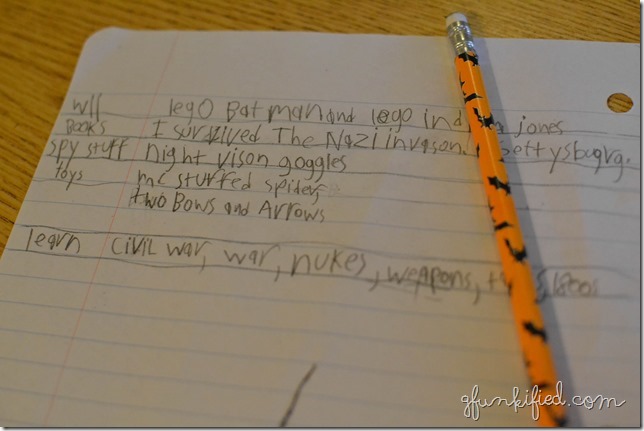 wII lego Batman and lego ind jones
Books I survived The Nazi invason,
spy stuff night vison goggles
toys mc stuffed spiders
two Bows and Arrows
learn civil war, war, nukes, weapons, 1800s
gfunkified.com